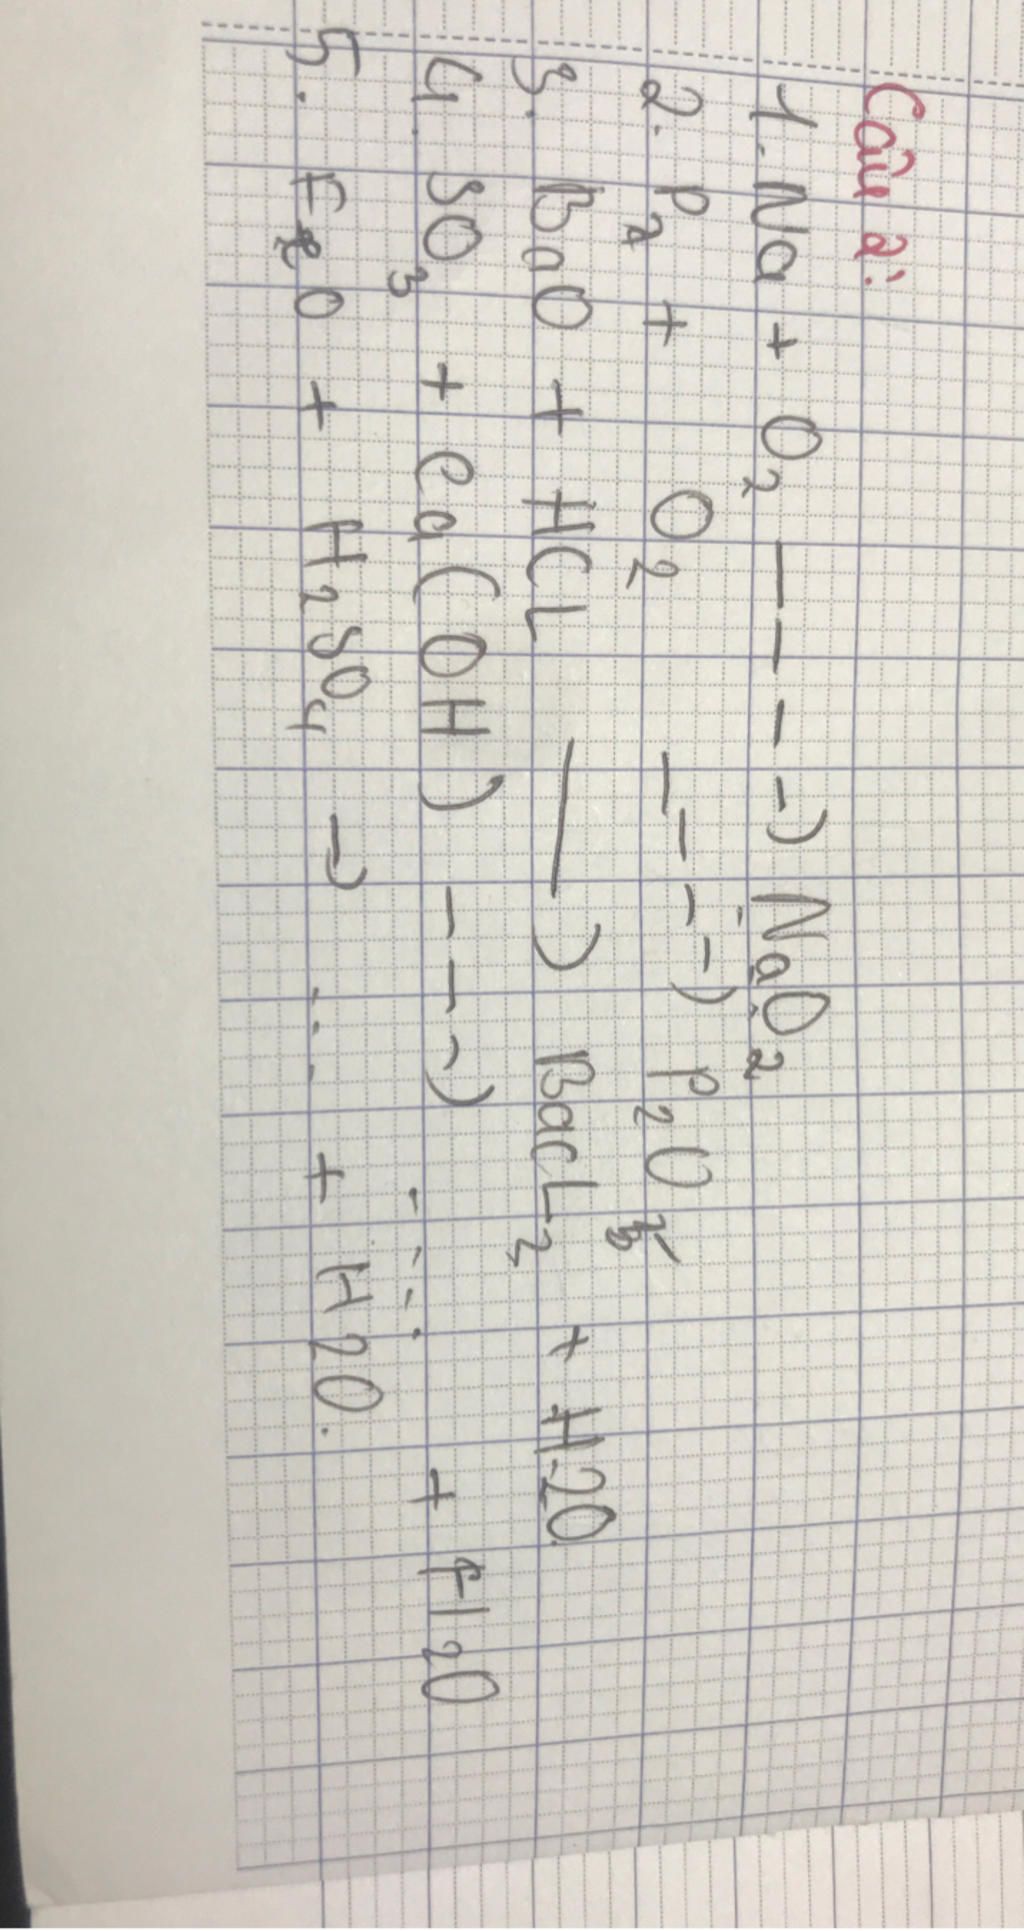 Câu 2:
1. Na + O2 ----> NaO2
2. P2 + O2 ----> P2O5
3. BaO + HCl —> BaCl2 + H2O
4. SO3 + Ca(OH) ---> .... + H2O
5. FeO + H2SO4 -> .... + H2O.